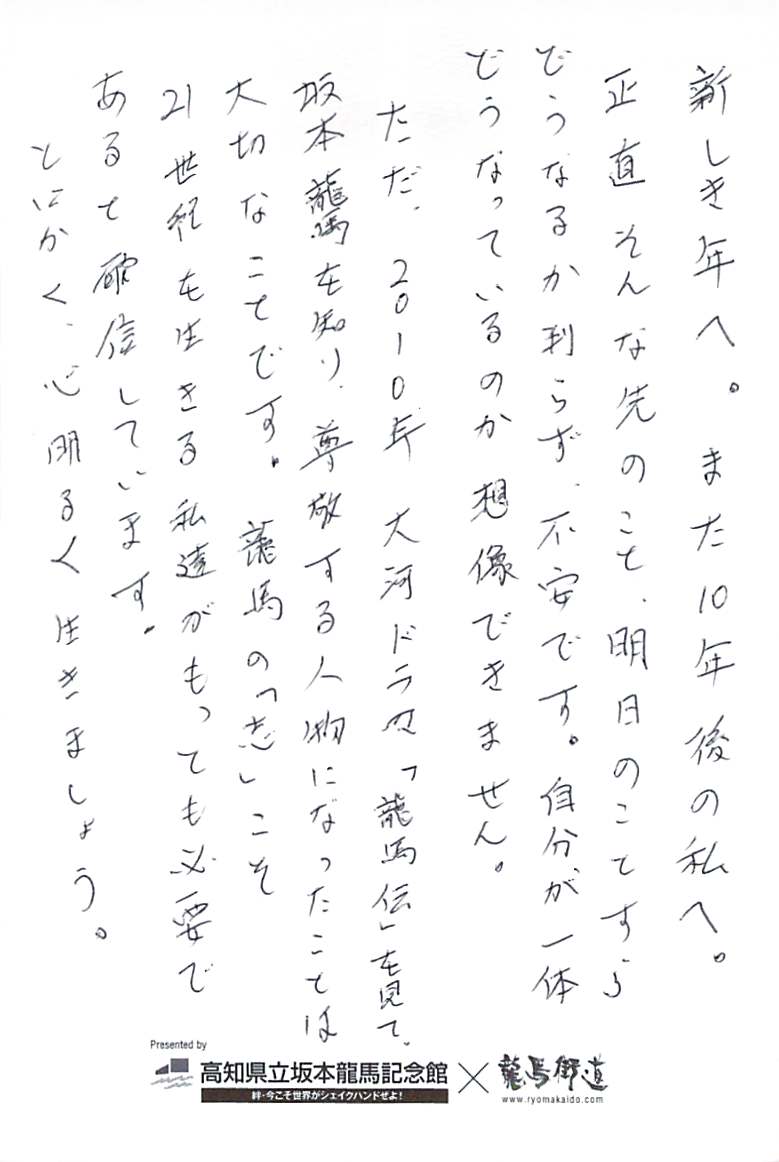 新しき年へ。また10年後の私へ。
正直そんな先のこと、明日のことすら
どうなるか判らず、不安です。自分が一体
どうなっているのか想像できません。
ただ、2010年大河ドラマ「龍馬伝」を見て、
坂本龍馬を知り、尊敬する人物になったことは
大切なことです。龍馬の「志」こそ
21世紀を生きる私達がもっても必要で
あると確信しています。
とにかく、心明るく生きましょう。
Presented by
高知県立坂本龍馬記念館
絆・今こそ世界がシェイクハンドせよ!
×
龍馬街道
www.ryomakaido.com